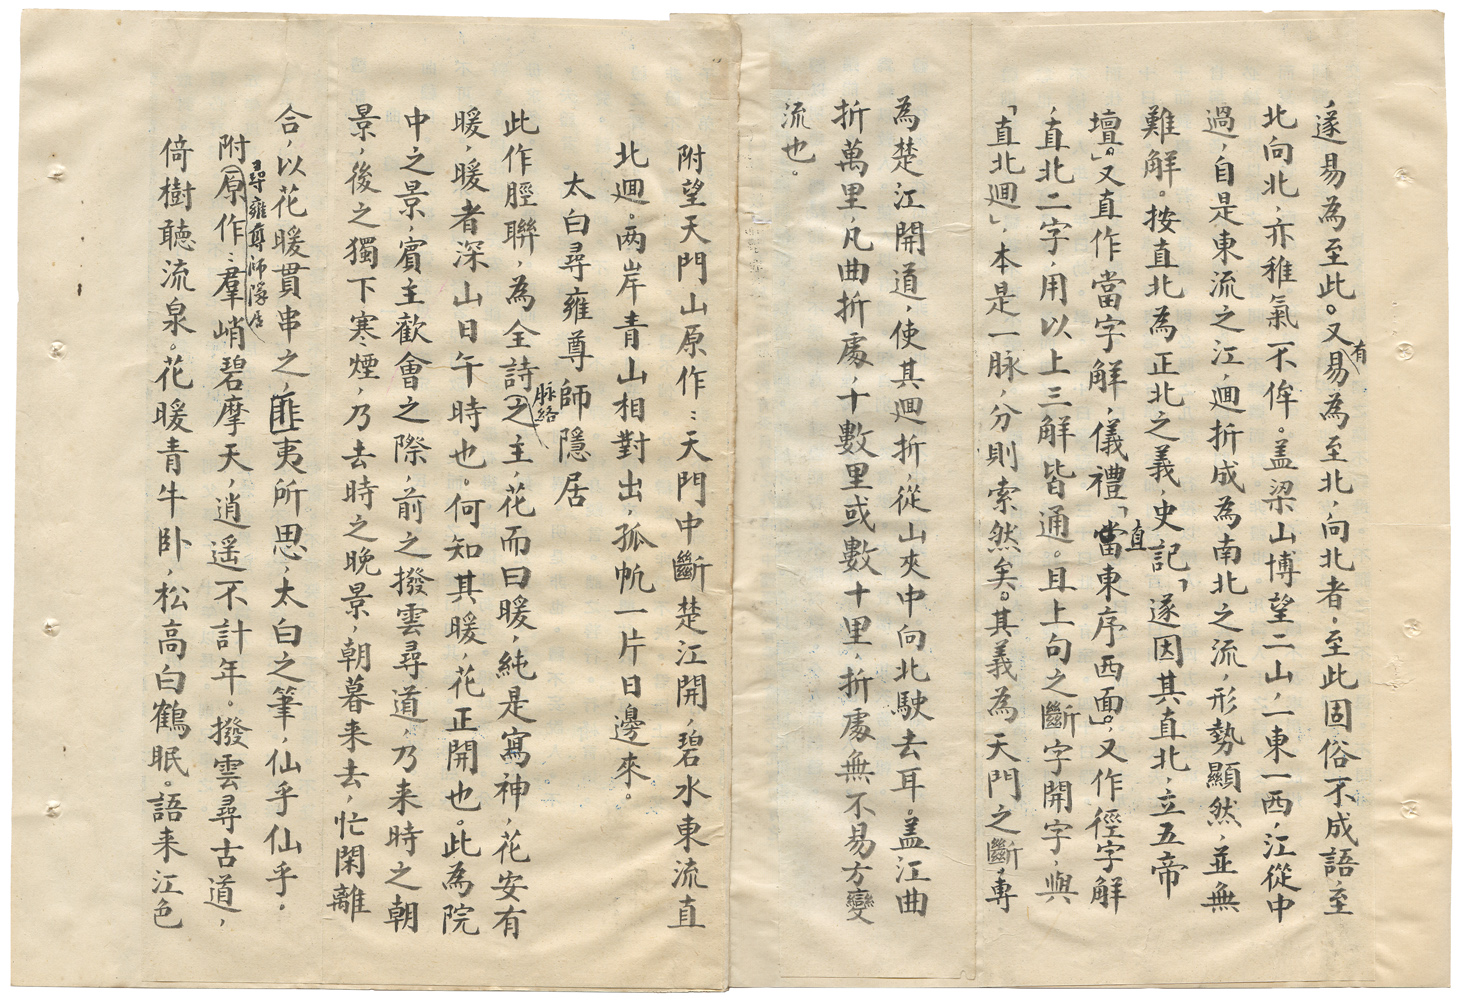 遂易為至此。又有易為至北，向北者，至此固俗不成語，至
北向北，亦稚氣不侔。盖梁山博望二山，一東一西，江從中
過，自是東流之江，迴折成為南北之流，形勢顯然，並無
難解。按直北為正北之義，史記「遂因其直北，立五帝
壇」。又直作當字解，儀禮「直東序西面」。又作徑字解
，直北二字，用以上三解皆通。且上句之斷字開字，與
「直北迴」，本是一脉，分則索然矣。其義為天門之斷，專
為楚江開道，使其迴折，從山夾中向北駛去耳。盖江曲
折萬里，凡曲折處，十數里或數十里，折處無不易方變
流也。
附望天門山原作：天門中斷楚江開，碧水東流直
北迴。两岸青山相對出，孤帆一片日邊來。
太白尋雍尊師隱居
此作脛聯，為全詩脉絡之主，花而曰暖，純是寫神，花安有
暖，暖者深山日午時也。何知其暖，花正開也。此為院
中之景，賓主歡會之際，前之撥雲尋道，乃来時之朝
景，後之獨下寒煙，乃去時之晚景，朝暮来去，忙閑離
合，以花暖貫串之，匪夷所思，太白之筆，仙乎仙乎。
附尋雍尊師隱居原作：羣峭碧摩天，逍遥不計年。撥雲尋古道，
倚樹聽流泉。花暖青牛卧，松高白鶴眠。語来江色